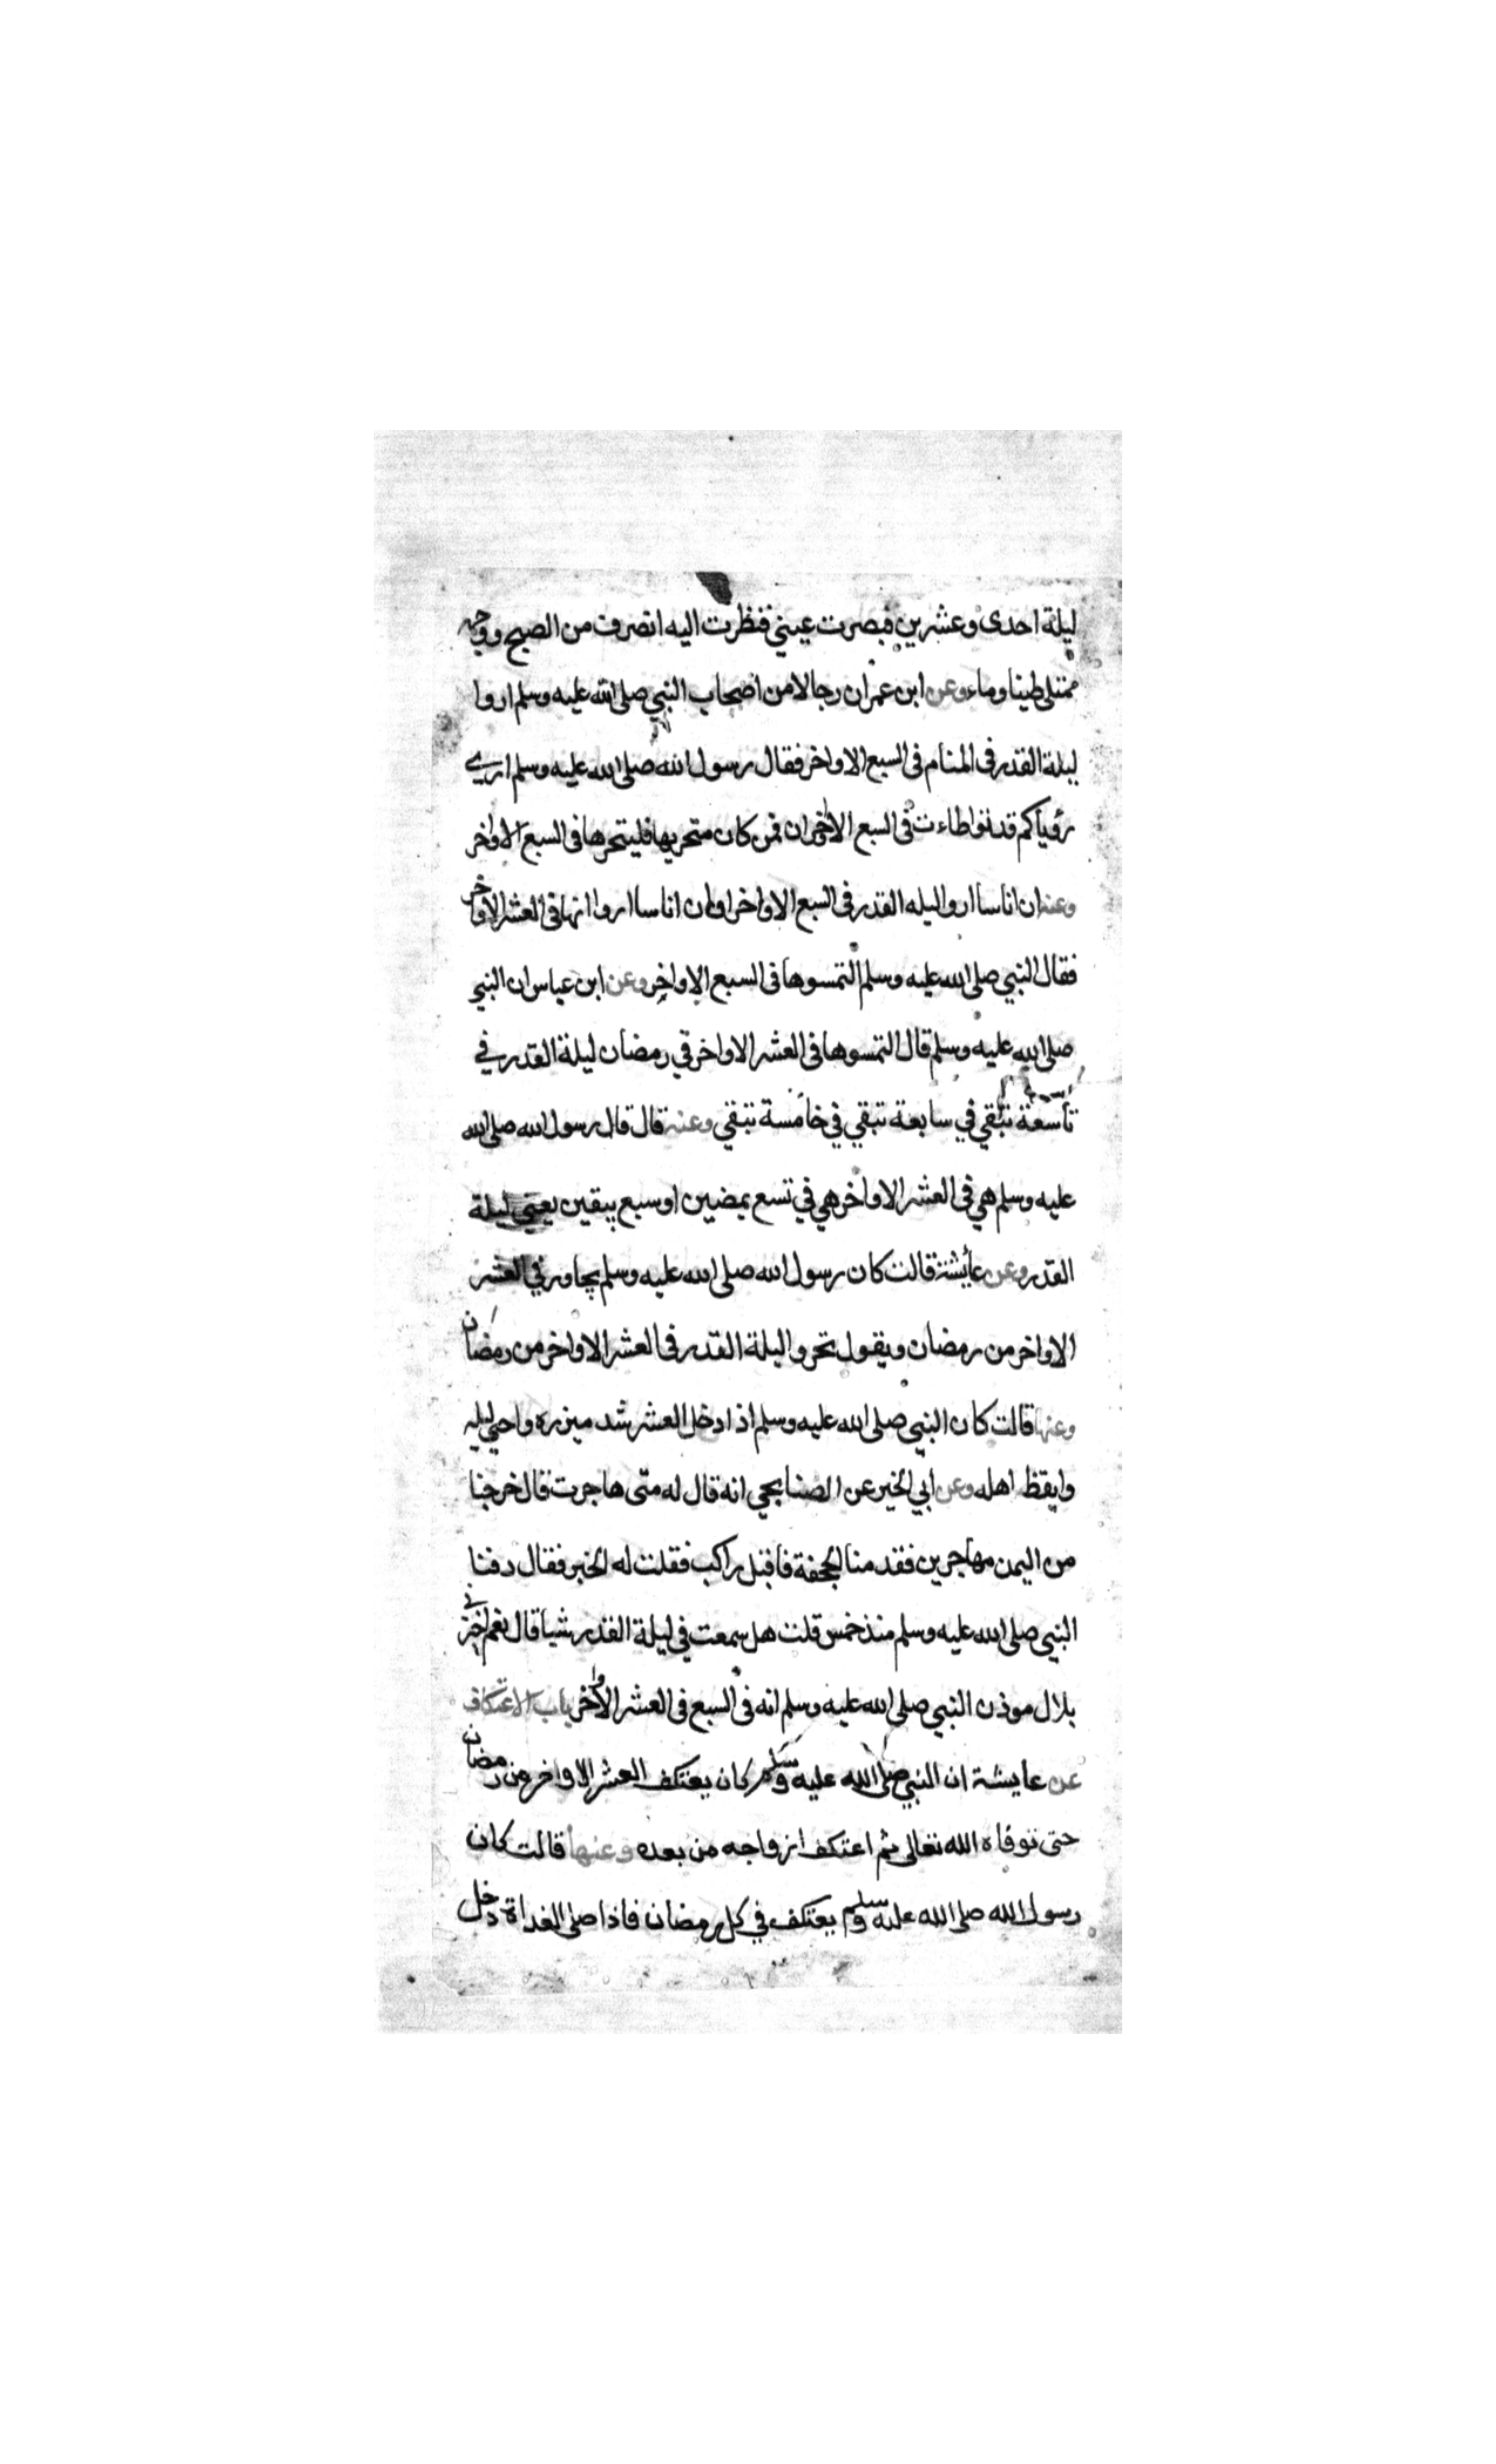 ليلة احدى وعشرين فبصرت عيني فنظرت اليه انصرف من الصبح ووجهه
ممتلى طينا وماء وعن ابن عمر ان رجالا من اصحاب النبي صلى الله عليه وسلم اروا
ليلة القدر فى المنام فى السبع الاواخر فقال رسول الله صلى الله عليه وسلم ارى
رؤياكم قد تواطاءت فى السبع الاواخر فمن كان متحريها فليتحرها فى السبع الاواخر
وعنه ان اناسا اروا ليله القدر فى السبع الاواخر وان اناسا اروا انها فى العشر الاواخر
فقال النبي صلى الله عليه وسلم التمسوها فى السبع الاواخر وعن ابن عباس ان النبي
صلى الله عليه وسلم قال التمسوها فى العشر الاواخر في رمضان ليلة القدر في
تاسعة تبقي في سابعة تبقي في خامسة تبقي وعنه قال قال رسول الله صلى الله
عليه وسلم هي فى العشر الاواخر هي في تسع يمضين او سبع يبقين يعني ليلة
القدر وعن عائشة قالت كان رسول الله صلى الله عليه وسلم يجاور في العشر
الاواخر من رمضان ويقول تحروا ليلة القدر فى العشر الاواخر من رمضان
وعنها قالت كان النبي صلى الله عليه وسلم اذا دخل العشر شد ميزره واحيي ليله
وايقظ اهله وعن ابي الخير عن الصنابحي انه قال له متى هاجرت قال خرجنا
من اليمن مهاجرين فقدمنا الجحفة فاقبل راكب فقلت له الخبر فقال دفنا
النبي صلى الله عليه وسلم منذ خمس قلت هل سمعت في ليلة القدر شيا قال نعم اخبرني
بلال موذن النبي صلى الله عليه وسلم انه فى السبع فى العشر الاواخر باب الاعتكاف
عن عايشة ان النبي صلى الله عليه وسلم كان يعتكف العشر الاواخر من رمضان
حتى توفاه الله تعالى ثم اعتكف ازواجه من بعده وعنها قالت كان
رسول الله صلى الله عليه وسلم يعتكف في كل رمضان فاذا صلى الغداة دخل